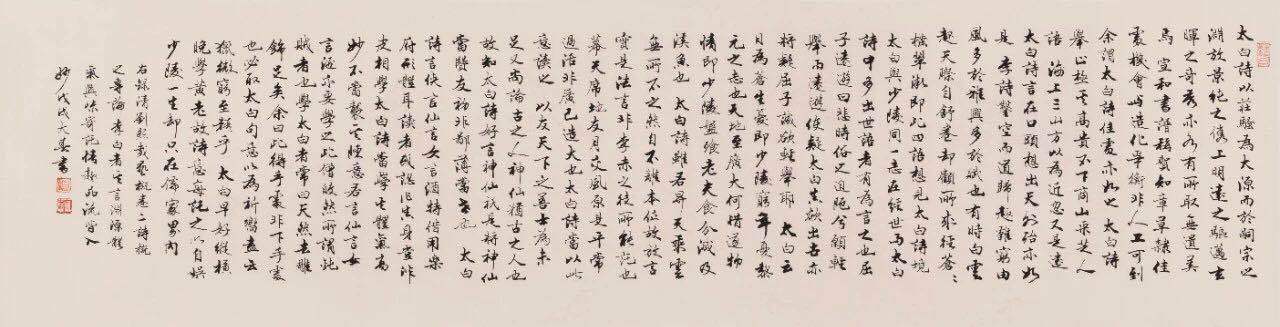 太白詩以莊騷為大源而於嗣宗之
淵放景純之俊上明遠之驅邁玄
暉之奇秀亦各有所取無遺美
焉 宣和書譜稱賀知章草隸佳
處機會與造化爭衡非人工可到
余謂太白詩佳處亦如之 太白詩
舉止極其高貴不下商山采芝人
語 海上三山方以為近忽又是遠
太白詩言在口頭想出天外殆亦如
是 李詩鑿空而道歸趣難窮由
風多於雅興多於賦也 有時白雲
起天際自舒卷却顧所來徑蒼〻
橫翠微即此四語想見太白詩境
太白與少陵同一志在經世而太白
詩中多出世語者有為言之也屈
子遠遊曰悲時俗之迫阨兮願輕
舉而遠遊使疑太白誠欲出世亦
將疑屈子誠欲輕舉耶 太白云
日為蒼生憂即少陵窮年憂黎
元之志也天地至廣大何惜遂物
情即少陵盤飧老夫食分減及
溪魚也 太白詩雖若升天乘雲
無所不之然自不離本位故放言
實是法言非李赤之徒所能託也
幕天席地友月交風原是平常
過活非廣己造大也太白詩當以此
意讀之 以友天下之善士為未
足又尚論古之人神仙猶古之人也
故知太白詩好言神仙只是將神仙
當賢友初非鄙薄當世也 太白
詩言俠言仙言女言酒特借用樂
府形體耳讀者或認作真身豈非
皮相學太白詩當學其體氣高
妙不當襲其陳意若言仙言女
言酒亦要學之此僧皎然所謂鈍
賊者也學太白者常曰天然去雕
飾足矣余曰此得手處非下手處
也必取太白句意以為祈嚮盍云
獵微窮至精乎 太白早好縱橫
晚學黃老故詩意每託之以自娛
少陵一生却只在儒家界內
右錄清劉熙載藝概卷二詩概
之章論李白者
妙 戊戌大暑書